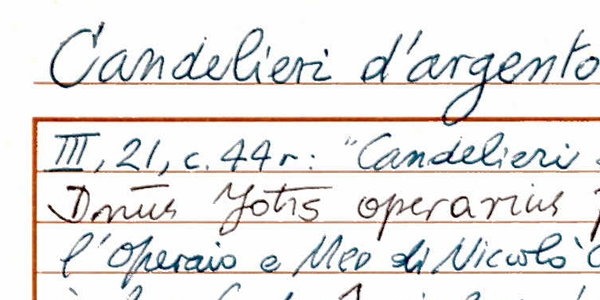 Candelieri d'argento
III, 21, c. 44r: "Candelieri
Dnūs Jotīs operarius
l'Operaio e Meo di Niccolò